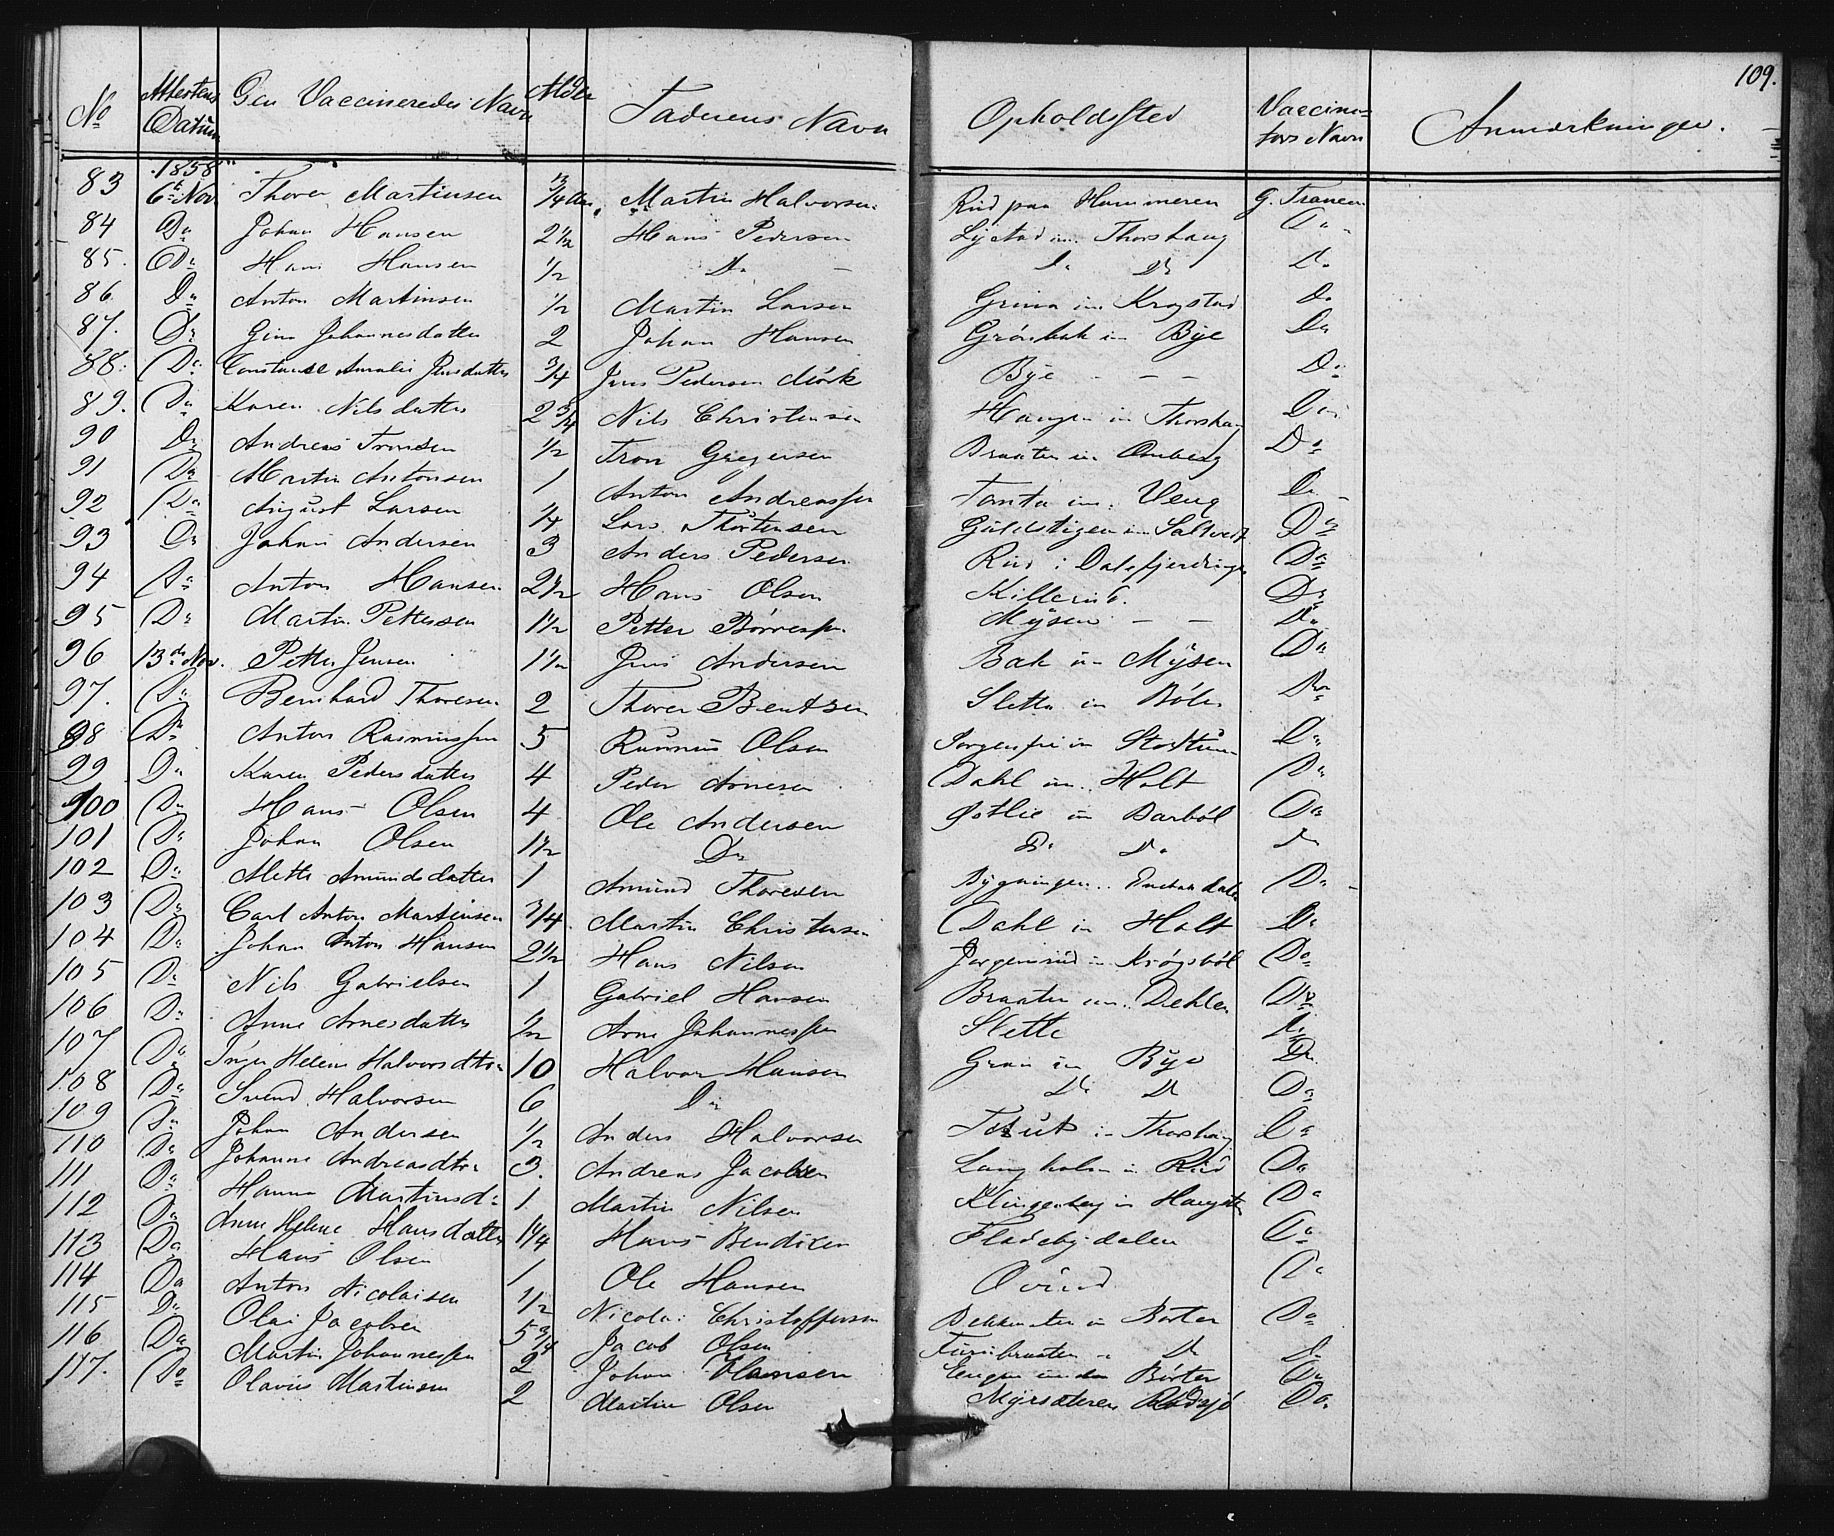 109.
No Attestens Datum Den Vaccineredes Navn Alder Faderens Navn Opholdssted Vaccina-tørs Navn Anmærkninger.
1858
83 6te Nov. Thorer Martinsen 3/4 Aar Martin Halvorsen Rud paa Hammeren G. Tranem
84 Do Johan Hansen 2 1/2 Hans Pedersen Lystad in Thorshaug Do
85. Do Hans Hansen 1/2 Do Do Do Do
86. Do Anton Martinsen 1/2 Martin Larsen Grina in Krogstad Do
87. Do Gina Johannesdatter 2 Johan Hansen Grøsbak in Bye Do
88. Do Constance Amalie Jensdatter 3/4 Jens Pedersen Mörk Bye - - Do
89. Do Karen Nilsdatter 2 3/4 Nils Christensen Haugen in Thorshaug Do
90 Do Andreas Tronsen 1/2 Tron Gregersen Braaten in Omberg Do
91 Do Martin Antonsen 1 Anton Andreassen Tomta in Veng Do
92 Do August Larsen 1/4 Lars Thostensen Guldstigen in Saltvedt Do
93 Do Johan Andersen 3 Anders Pedersen Rud i Dalefjerdingen Do
94 Do Anton Hansen 2 1/2 Hans Olsen Killerud. Do
95 Do Martin Pettersen 1 1/2 Petter Børresen Mysen - - Do
96 13de Nov. Petter Jensen 1 1/2 Jens Andersen Bak in Mysen Do
97. Do Bernhard Thoresen 2 Thorer Bentzen Slette in Böler Do
98 Do Anton Rasmussen 5 Rasmus Olsen Sorgenfri in Do
99 Do Karen Pedersdatter 4 Peder Arnesen Dahl in Holt Do
100 Do Hans Olsen 4 Ole Andersen Østlie in Barböl Do
101 Do Johan Olsen 1 1/2 Do Do Do Do
102 Do Mette Amundsdatter 1 Amund Thoresen Bygningen Do
103 Do Carl Anton Martinsen 3/4 Martin Christensen Dahl in Holt Do
104 Do Johan Anton Hansen 2 1/2 Hans Nilsen Jørgensrud in Krögsböl Do
105 Do Nils Gabrielsen 1 Gabriel Hansen Braaten in Dehlen Do
106 Do Anne Arnesdatter 1/2 Arne Johannessen Slette Do
107 Do Inger Helene Halvorsdtr 10 Halvor Hansen Gran in Bye Do
108 Do Svend Halvorsen 6 Do Do Do Do
109 Do Johan Andersen 1/2 Anders Halvorsen in Thorshaug Do
110 Do Johanne Andreasdtr 3. Andreas Jacobsen Langholen in Rud Do
111 Do Hanna Martinsd: 1 Martin Nilsen Klingenberg in Do
112 Do Anne Helene Hansdatter 1 1/4 Hans Bendixen Fladebydalen Do
113 Do Hans Olsen 1 Ole Hansen Do
114 Do Anton Nicolaisen 1/2 Nicolai Christoffersen in Børter Do
115 Do Olai Jacobsen 5 3/4 Jacob Olsen Furubraaten Do Do
116 Do Martin Johannessen 2 Johan Hansen Engen under Børter Do
117. Do Olavus Martinsen 2 Martin Olsen Myrsæteren Do